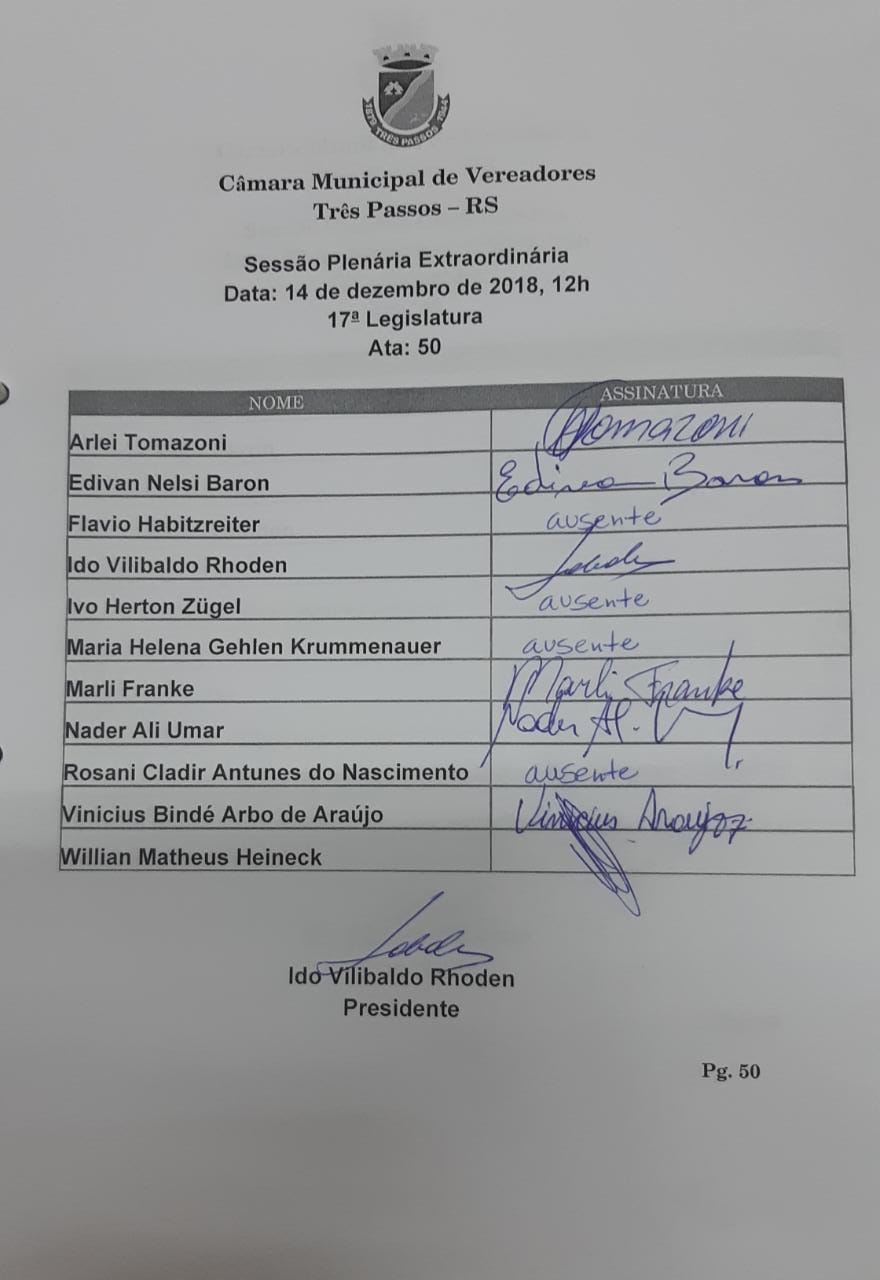 1879 TRÊS PASSOS 1944
Câmara Municipal de Vereadores
Três Passos – RS
Sessão Plenária Extraordinária
Data: 14 de dezembro de 2018, 12h
17ª Legislatura
Ata: 50
NOME ASSINATURA
Arlei Tomazoni ATomazoni
Edivan Nelsi Baron Edivan Baron
Flavio Habitzreiter ausente
Ido Vilibaldo Rhoden
Ivo Herton Zügel ausente
Maria Helena Gehlen Krummenauer ausente
Marli Franke Marli Franke
Nader Ali Umar Nader Al.
Rosani Cladir Antunes do Nascimento ausente
Vinicius Bindé Arbo de Araújo Vinicius Araujo
Willian Matheus Heineck
Ido Vilibaldo Rhoden
Presidente
Pg. 50